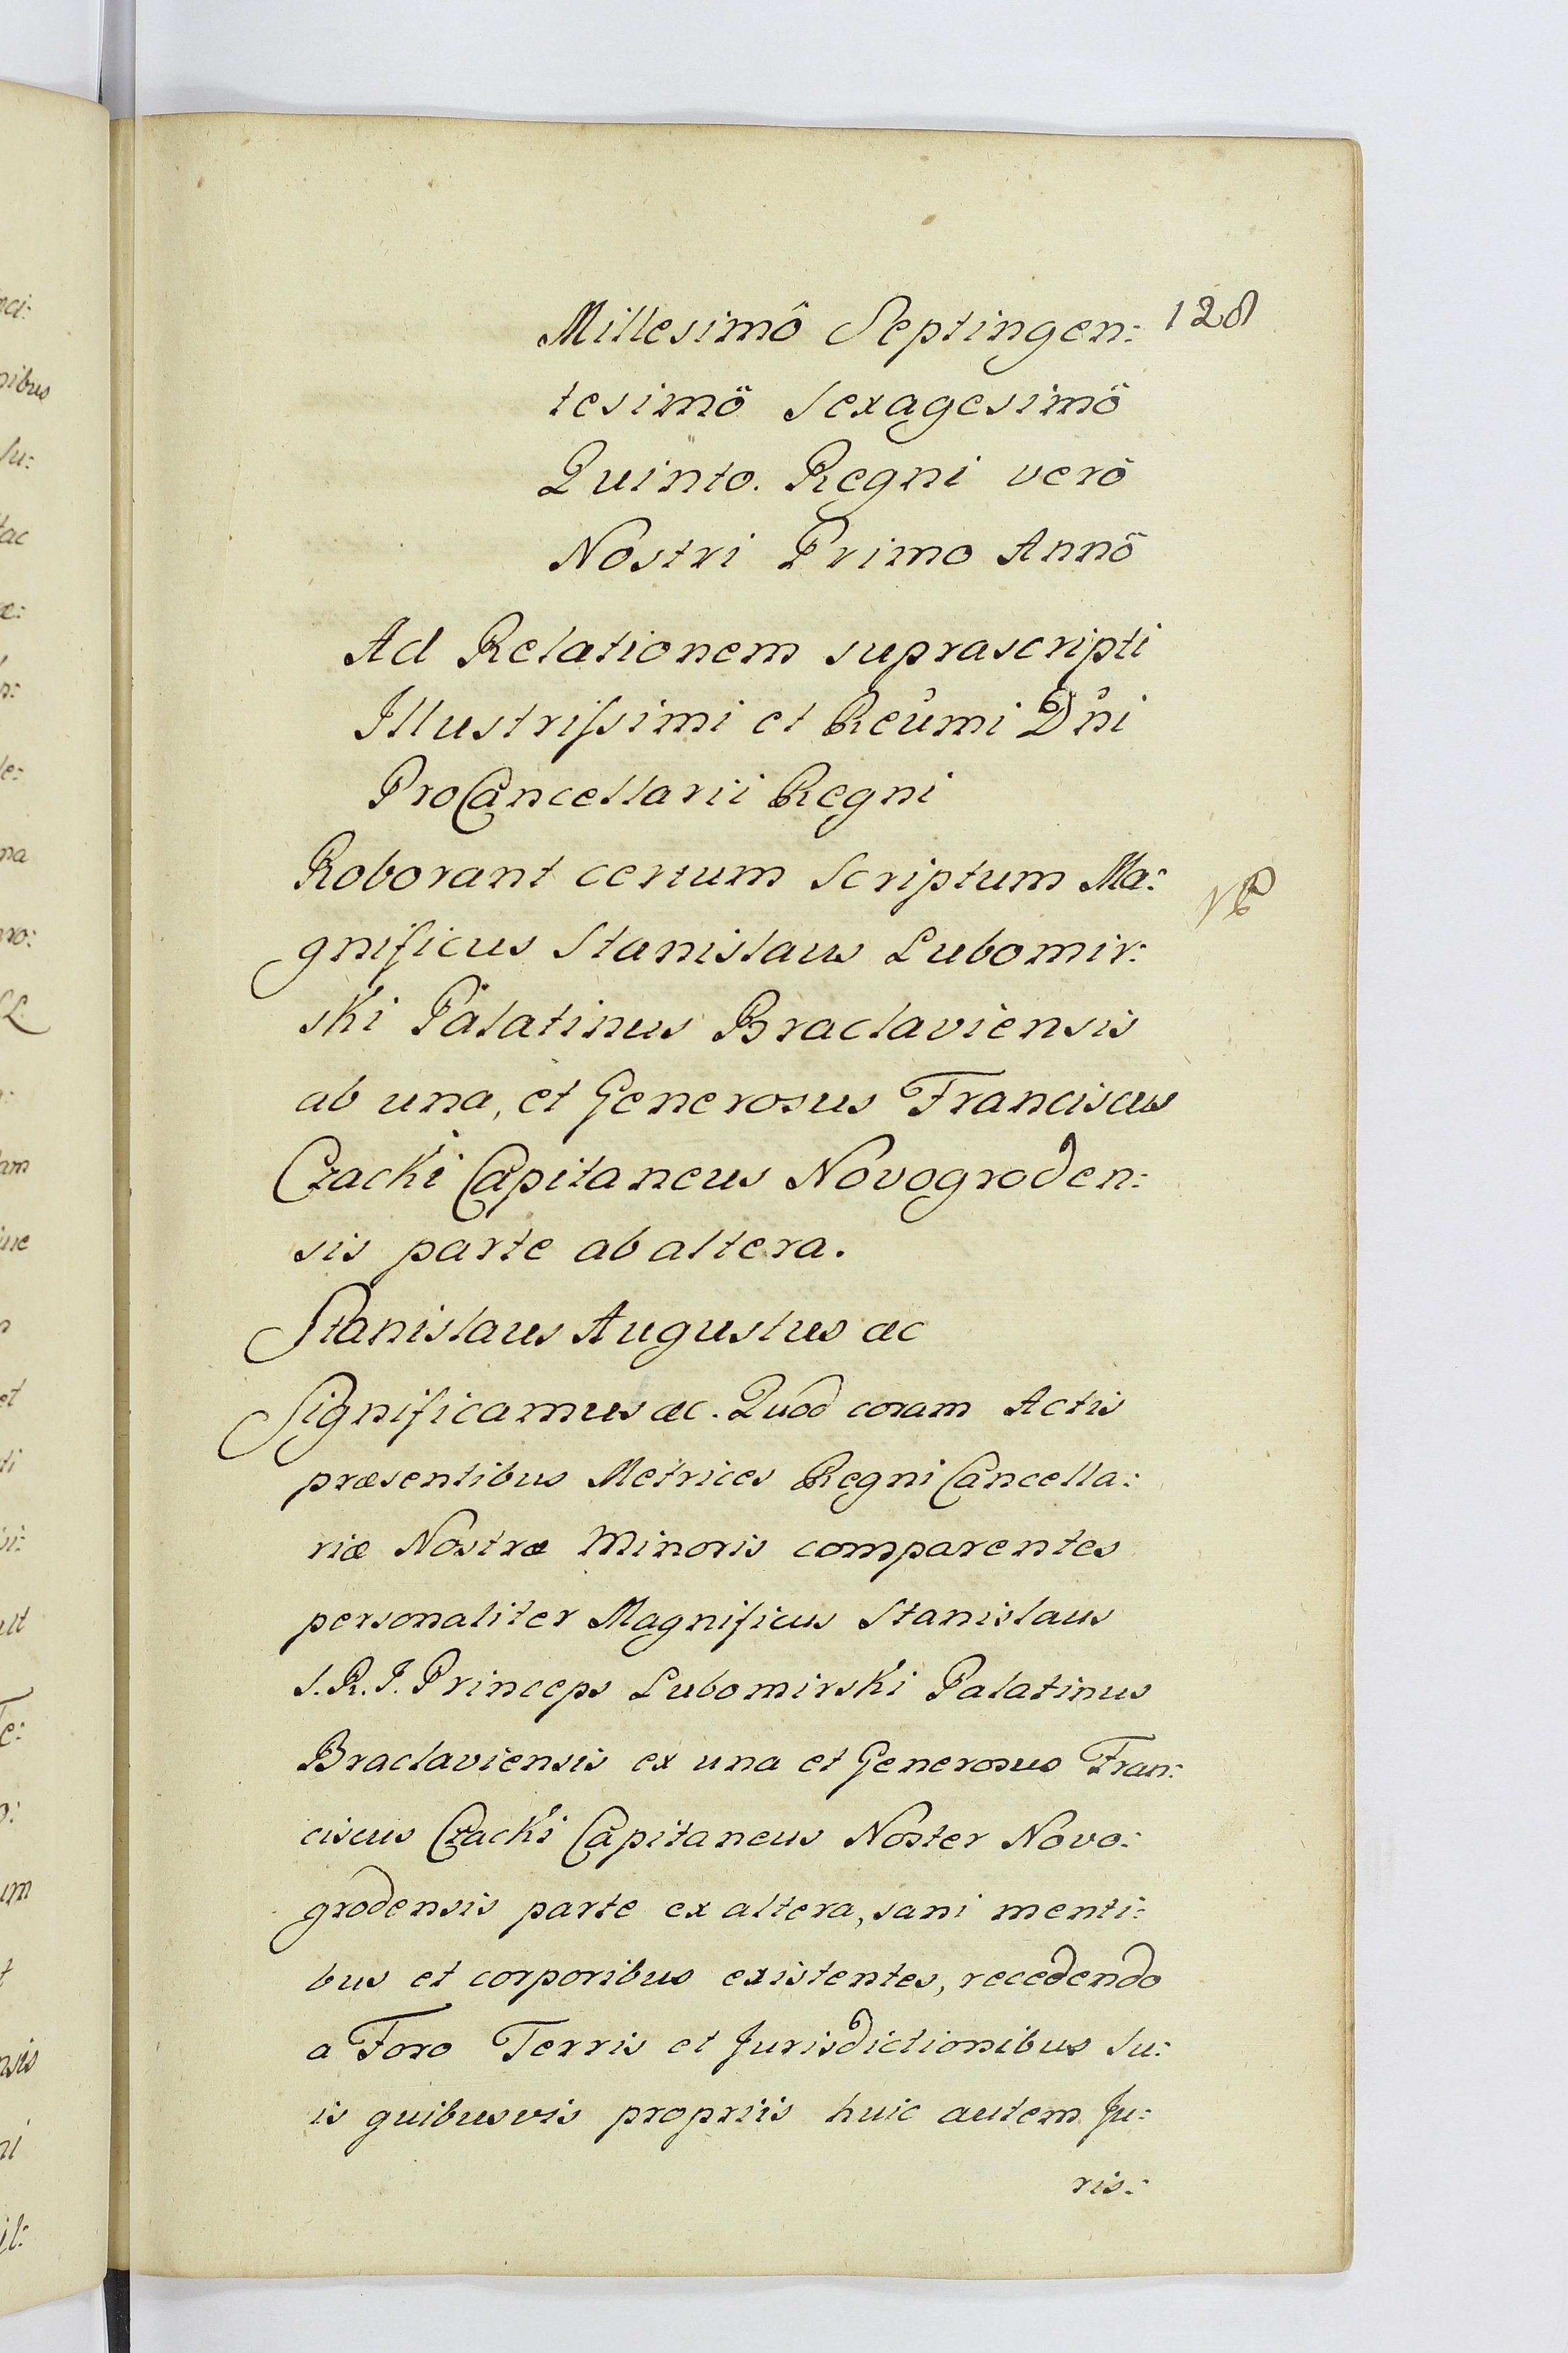 Millesimô Septingen: 128
tesimô Sexagesimô
Quinto. Regni verô
Nostri Primo Annô
Ad Relationem suprascripti
Illustrissimi et Reümi Dni
ProCancellarii Regni
Roborant certum Scriptum Ma:
gnificus Stanislaus Lubomir:
ski Palatinus Braclaviensis
ab una, et Generosus Franciscus
Czacki Capitaneus Novogroden:
sis parte ab altera.
Stanislaus Augustus æc
Significamus æc. Quod coram Actis
præsentibus Metrices Regni Cancella:
riæ Nostræ Minoris comparentes
personaliter Magnificus Stanislaus
S.R.I. Princeps Lubomirski Palatinus
Braclaviensis ex una et Generosus Fran:
ciscus Czacki Capitaneus Noster Novo:
grodensis parte ex altera, sani menti:
bus et corporibus existentes, recedendo
a Foro Terris et Jurisdictionibus Su:
is quibusvis propriis huic autem Ju:
ris: